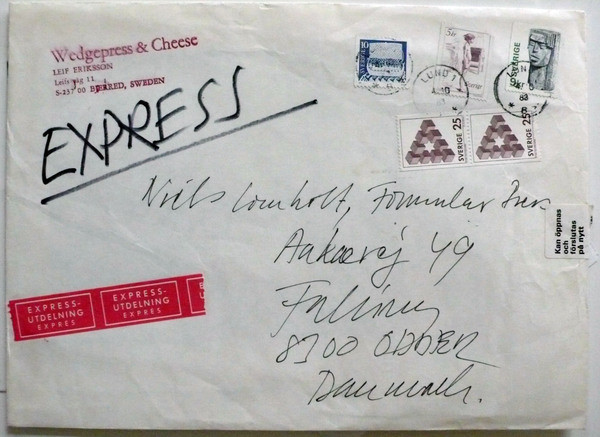 Wedgepress & Cheese
LEIF ERIKSSON
Leifs väg 11
S-237 00 BJERRED, SWEDEN
EXPRESS
10
SVERIGE
LUND 1
SVERIGE 25
SVERIGE 25
Niels Lomholt, Formular Press
Aakærvej 49
Falling
8300 ODDER
Danmark.
Kan öppnas
och
förslutas
på nytt
EXPRESS-
UTDELNING
EXPRES
EXPRESS-
UTDELNING
EXPRES